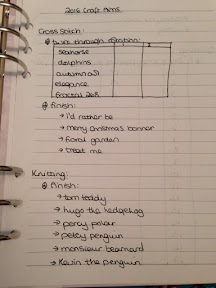 2016 Craft Aims
Cross Stitch
turn through rotation:
1 2
seahorse
dolphins
autumn owl
elegance
fractal 265
finish:
→ I'd rather be
→ merry christmas banner
→ floral garden
→ treat me
Knitting:
finish:
→ tom teddy
→ hugo the hedgehog
→ percy polar
→ petey penguin
→ monsieur bearnard
→ Kevin the penguin